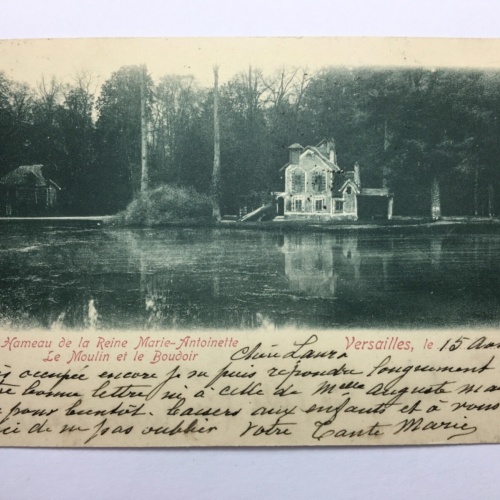 Hameau de la Reine Marie-Antoinette
Le Moulin et le Boudoir
Versailles, le 15 Aou
Chère Laura
s occupée encore je ne puis repondre longuement
bonne lettre ni à celle de Melle Auguste ma
pour bientôt. baisers aux enfants et à vous
ci de ne pas oublier Votre Tante Marie